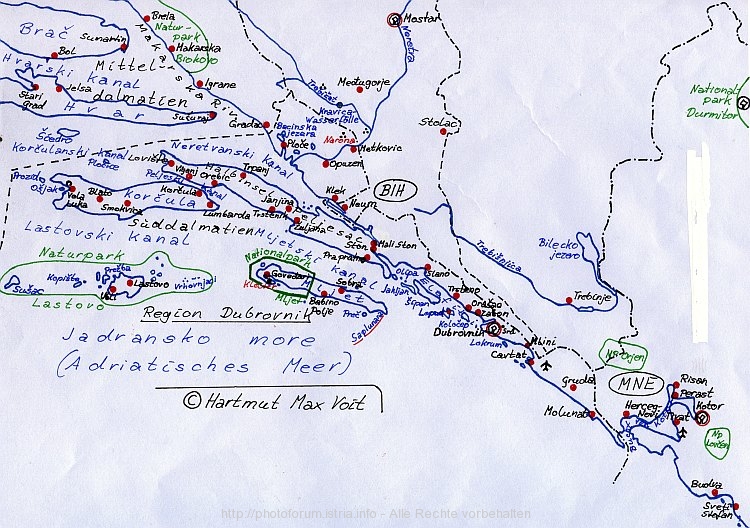 Brela
Mostar
Natur-
park
Biokovo
Brač
Sumartin
Makarska
Bol
Neretva
Makarska Riv.
Hvarski Kanal
Mittel-
dalmatien
Igrane
Međugorje
Trebižat
Kravica
Wasserfälle
National-
park
Durmitor
Stari
Grad
Jelsa
Hvar
Sućuraj
Gradac
Bacinska
jezera
Stolac
Ploče
Narona
Metkovic
Opuzen
Šćedro
Korčulanski Kanal
Pločice
Lovište
Neretvanski Kanal
Viganj
Orebic
Trpanj
Pelješki Kanal
Halbinsel
Pelješac
Klek
Neum
BIH
Proizd
Ošjak
Vela
Luka
Blato
Smokvica
Korčula
Korčula
Lumbarda
Janjina
Trstenik
Žuljana
Süddalmatien
Lastovski Kanal
Mljetski Kanal
Ston
Mali Ston
Prapratno
Trebišnica
Bilecko
jezero
Trebinje
Naturpark
Lastovo
Nationalpark
Mljet
Govedari
Sobra
Babino
Polje
Mljet
Saplunara
Kopište
Prežba
Sušac
Ubli
Lastovo
Vrhovnjaci
Olipa
Jakljan
Šipan
Lopud
Koločep
Slano
Trsteno
Orašac
Zaton
Dubrovnik
Srđ
Lokrum
Mlini
Cavtat
Region Dubrovnik
Jadransko more
(Adriatisches Meer)
© Hartmut Max Voit
Gruda
Molunat
NP Orjen
MNE
Risan
Perast
Kotor
Herceg-
Novi
Tivat
Np
Lovćen
Budva
Sveti
Stefan
http://photoforum.istria.info - Alle Rechte vorbehalten